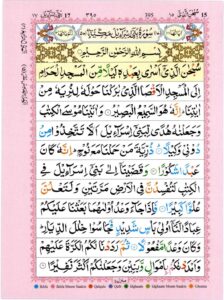 سبحٰن الذی ١٥ 15 ٣٩٥ 395 بنی اسرآءیل ١٧ 17
بِسْمِ اللّٰهِ الرَّحْمٰنِ الرَّحِیْمِ
سُبْحٰنَ الَّذِیْۤ اَسْرٰی بِعَبْدِهٖ لَیْلًا مِّنَ الْمَسْجِدِ الْحَرَامِ
اِلَی الْمَسْجِدِ الْاَقْصَا الَّذِیْ بٰرَكْنَا حَوْلَهٗ لِنُرِیَهٗ مِنْ
اٰیٰتِنَا ؕ اِنَّهٗ هُوَ السَّمِیْعُ الْبَصِیْرُ ۝ وَاٰتَیْنَا مُوْسَی الْكِتٰبَ
وَجَعَلْنٰهُ هُدًی لِّبَنِیْۤ اِسْرَآءِیْلَ اَلَّا تَتَّخِذُوْا مِنْ
دُوْنِیْ وَكِیْلًا ۝ ذُرِّیَّةَ مَنْ حَمَلْنَا مَعَ نُوْحٍ ؕ اِنَّهٗ كَانَ
عَبْدًا شَكُوْرًا ۝ وَقَضَیْنَاۤ اِلٰی بَنِیْۤ اِسْرَآءِیْلَ فِی
الْكِتٰبِ لَتُفْسِدُنَّ فِی الْاَرْضِ مَرَّتَیْنِ وَلَتَعْلُنَّ
عُلُوًّا كَبِیْرًا ۝ فَاِذَا جَآءَ وَعْدُ اُوْلٰىهُمَا بَعَثْنَا عَلَیْكُمْ
عِبَادًا لَّنَاۤ اُولِیْ بَاْسٍ شَدِیْدٍ فَجَاسُوْا خِلٰلَ الدِّیَارِ ؕ
وَكَانَ وَعْدًا مَّفْعُوْلًا ۝ ثُمَّ رَدَدْنَا لَكُمُ الْكَرَّةَ عَلَیْهِمْ
وَاَمْدَدْنٰكُمْ بِاَمْوَالٍ وَّبَنِیْنَ وَجَعَلْنٰكُمْ اَكْثَرَ نَفِیْرًا ۝